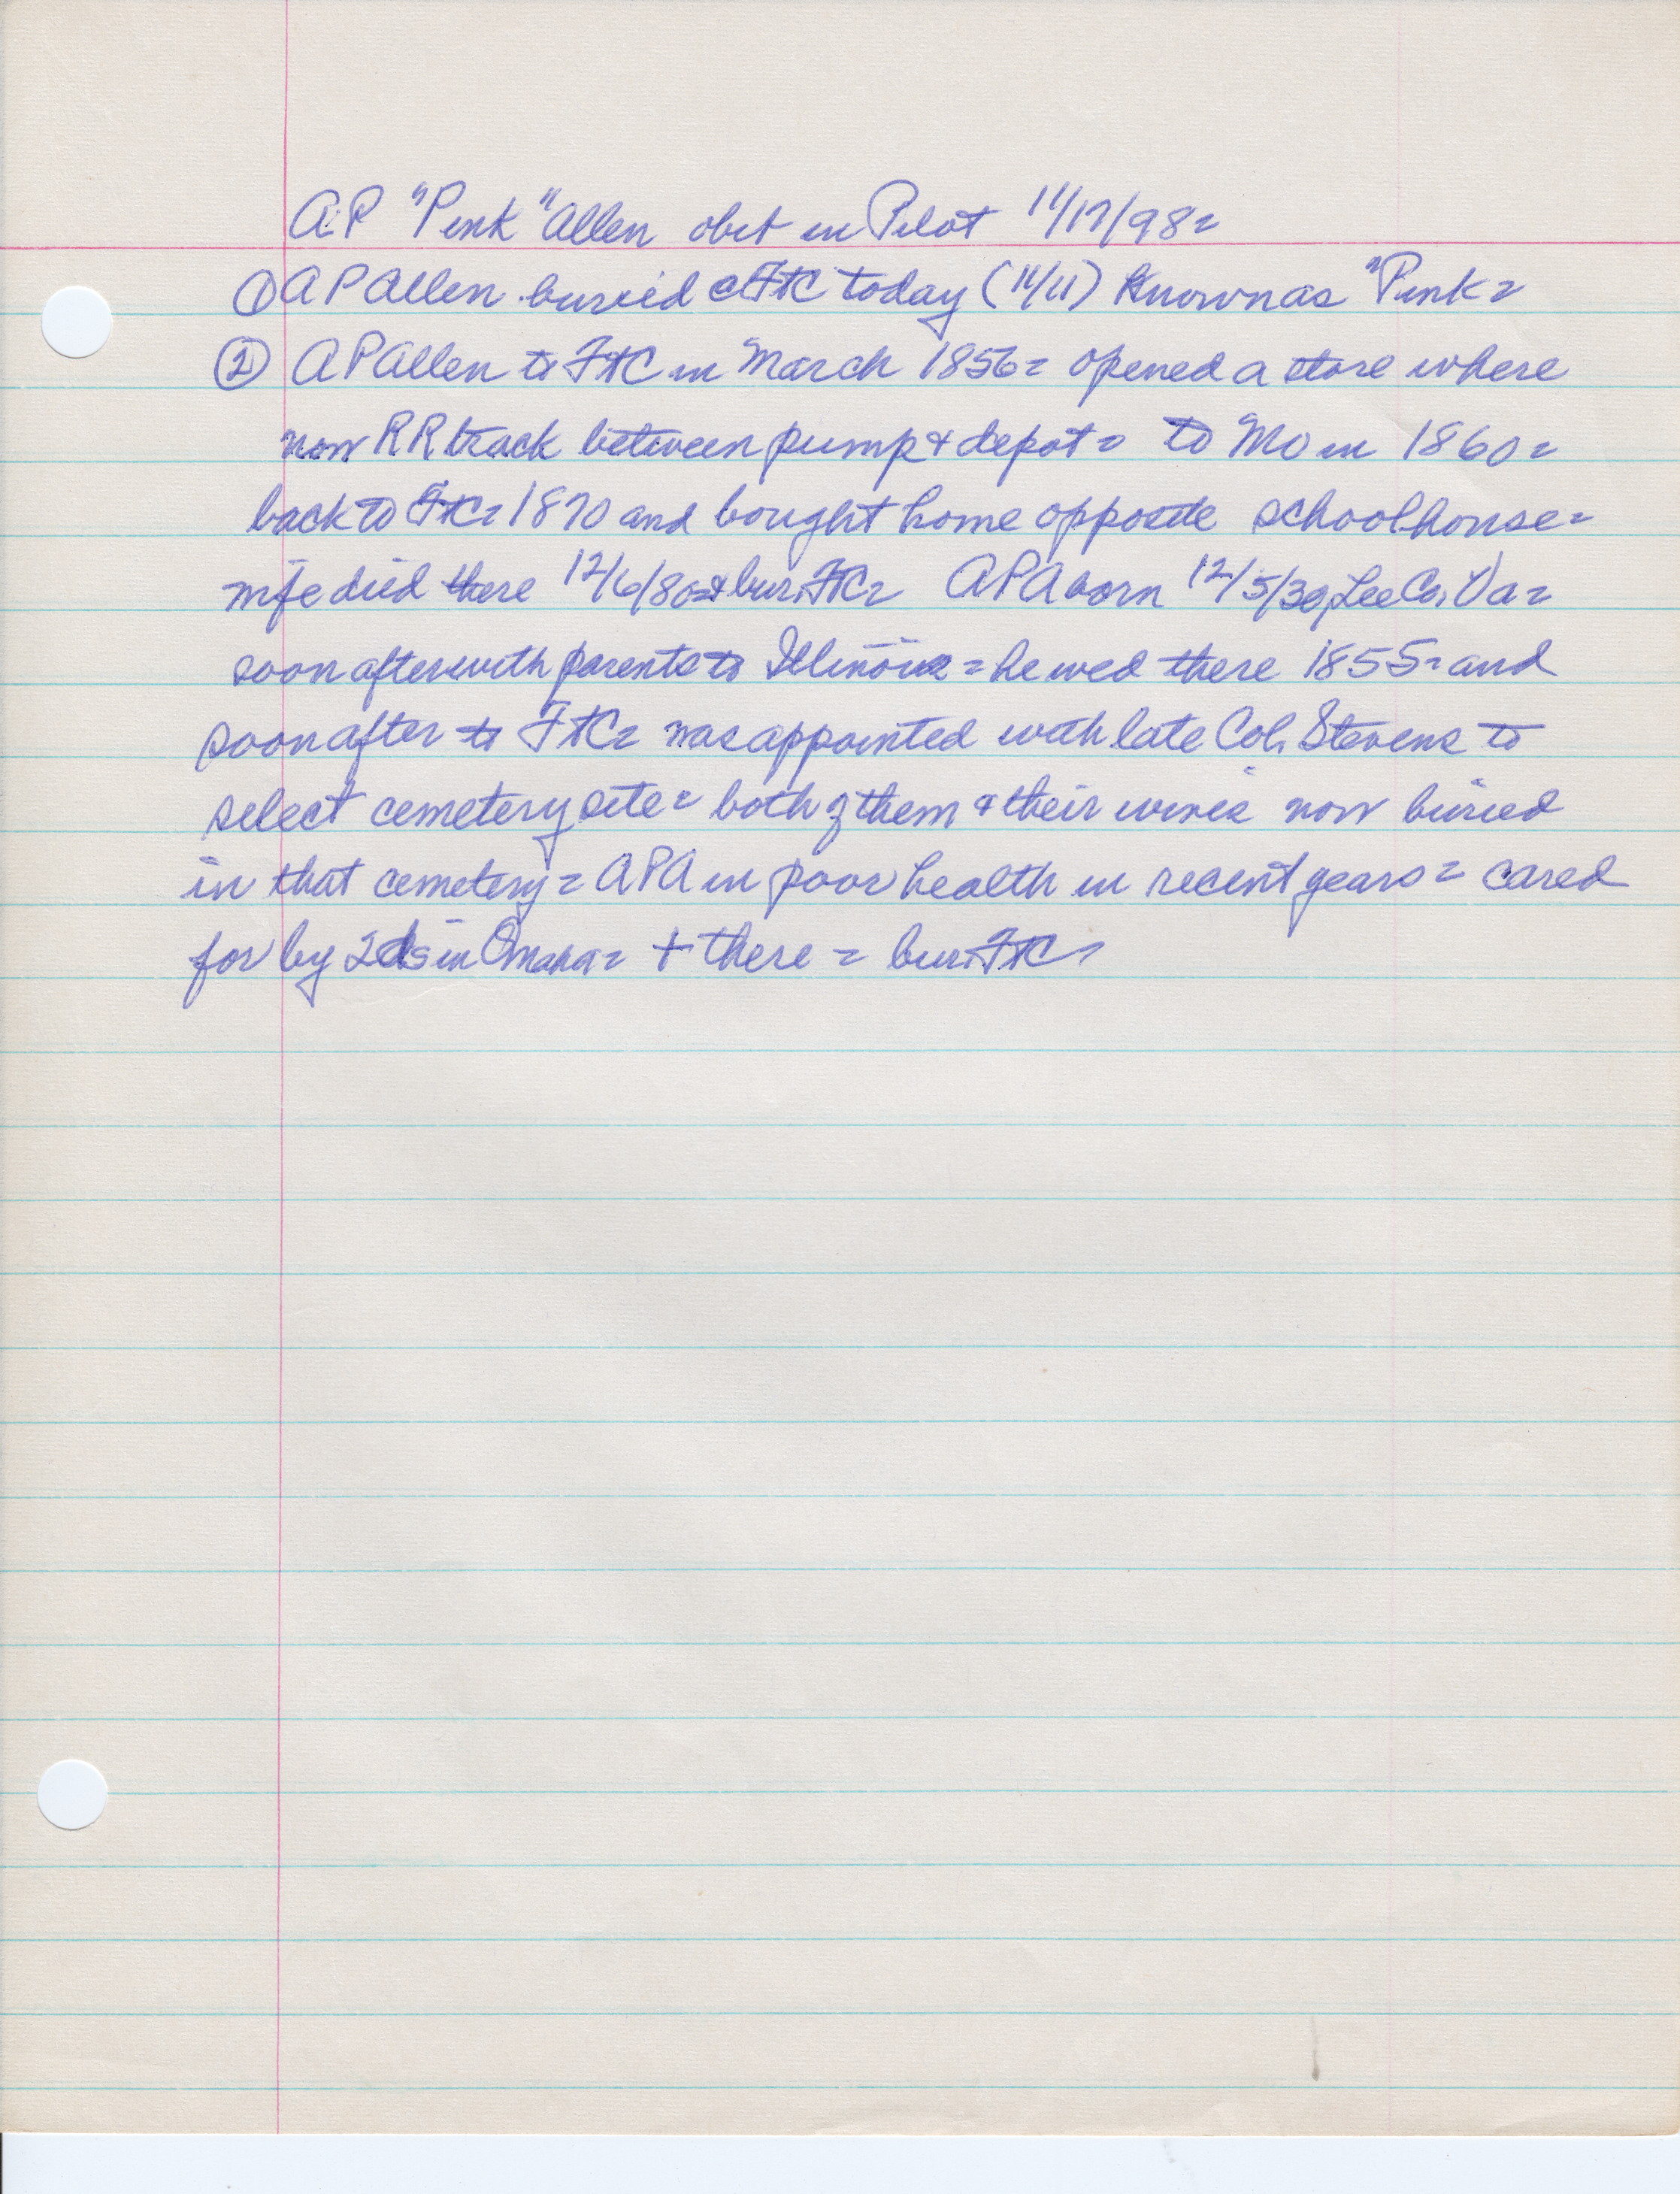 A.P. "Pink" Allen obit in Pilot 11/17/98=
① A P Allen buried @ FtC today (11/11) Known as "Pink=
② A P Allen to FtC in March 1856= opened a store where
now RR track between pump & depot= to Mo in 1860=
back to FtC= 1870 and bought home opposite schoolhouse=
wife died there 12/6/80=& bur. FtC= APA born 12/5/30, Lee Co, Va=
soon after with parents to Illinois = he wed there 1855= and
soon after to FtC= was appointed with late Col. Stevens to
select cemetery site= both of them & their wives now buried
in that cemetery= APA in poor health in recent years= cared
for by 2 ds in Omaha= + there = bur. FtC=